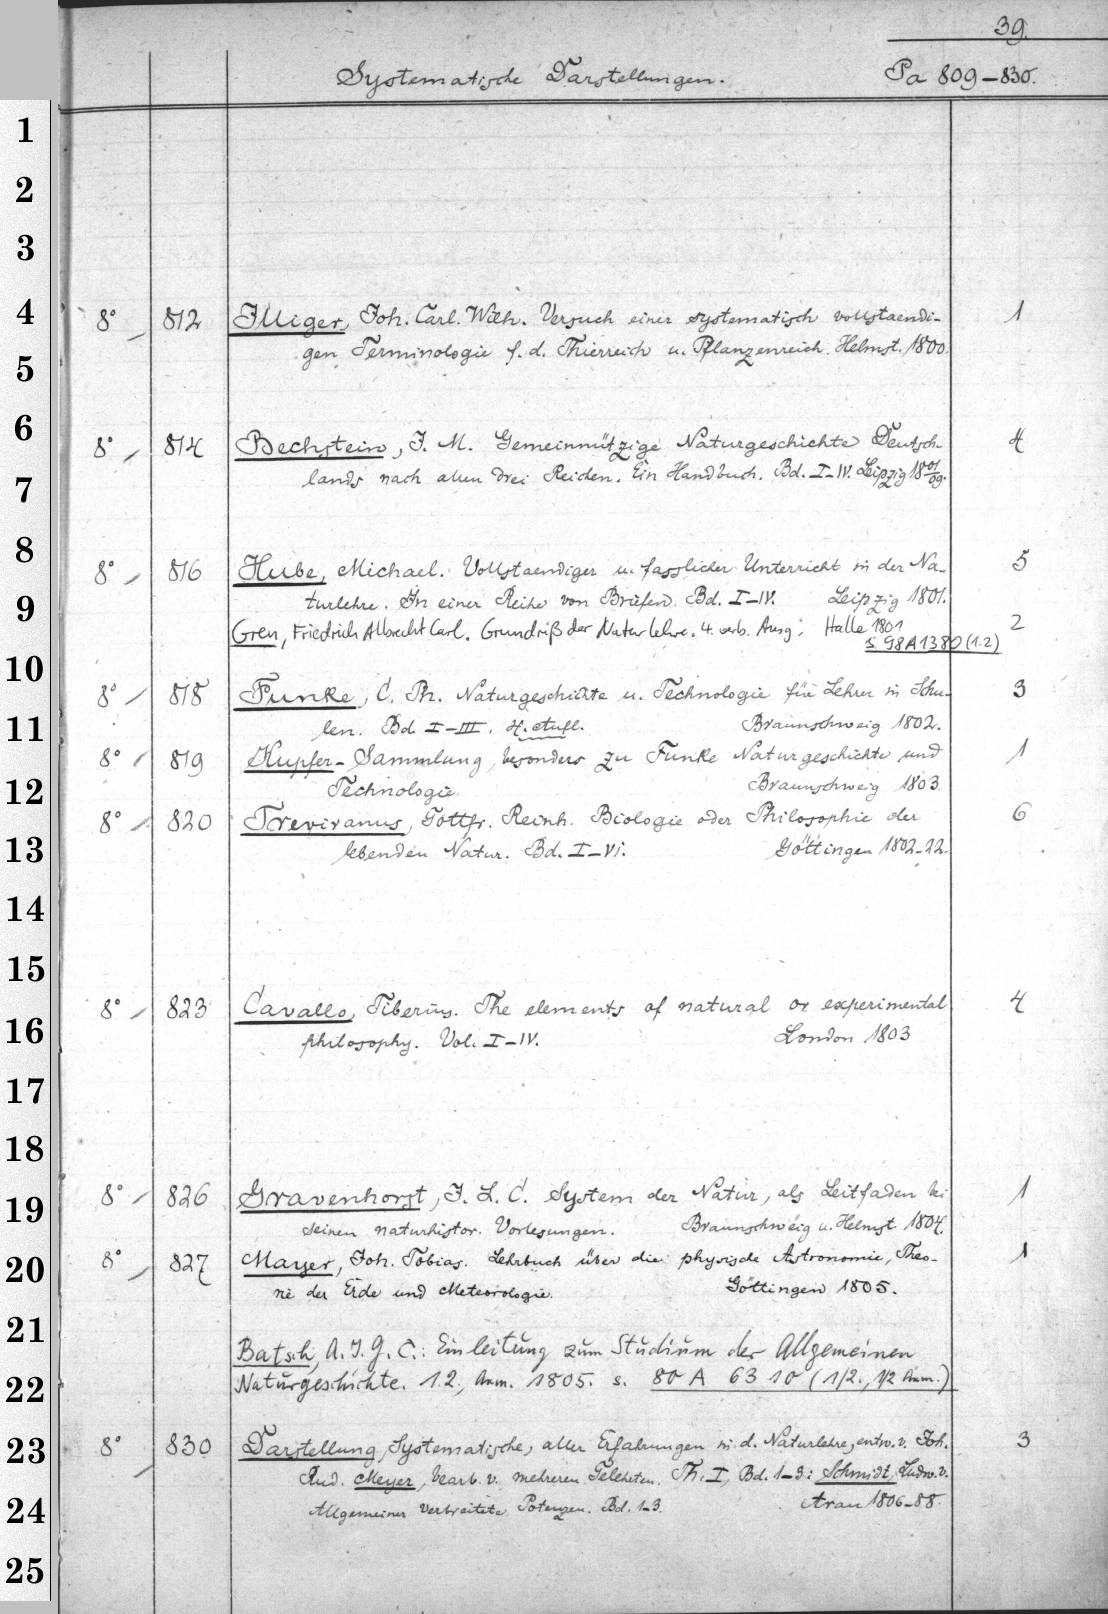 39.
Systematische Darstellungen. Pa 809-830.
1
2
3
4 8° 812 Illiger, Joh. Carl. Wilh. Versuch einer systematisch vollstaendi- 1
5 gen Terminologie f. d. Thierreich u. Pflanzenreich. Helmst. 1800
6 8° 814 Bechstein, J. M. Gemeinnützige Naturgeschichte Deutsch- 4
7 lands nach allen drei Reichen. Ein Handbuch. Bd. I-IV. Leipzig 1801/09.
8 8° 816 Hube, Michael. Vollstaendiger u. fasslicher Unterricht in der Na- 5
9 turlehre. In einer Reihe von Briefen. Bd. I-IV. Leipzig 1801.
Gren, Friedrich Albrecht Carl. Grundriß der Naturlehre. 4. verb. Ausg. Halle 1801 2
s. 98A1380 (1.2)
10 8° 818 Funke, C. Ph. Naturgeschichte u. Technologie für Lehrer in Schu- 3
11 len. Bd. I-III. 4. Aufl. Braunschweig 1802.
8° 819 Kupfer-Sammlung, besonders zu Funke Naturgeschichte und 1
12 Technologie. Braunschweig 1803.
8° 820 Treviranus, Gottfr. Reinh. Biologie oder Philosophie der 6
13 lebenden Natur. Bd. I-VI. Göttingen 1802-22.
14
15
8° 823 Cavallo, Tiberius. The elements of natural or experimental 4
16 philosophy. Vol. I-IV. London 1803
17
18
19 8° 826 Gravenhorst, J. L. C. System der Natur, als Leitfaden bei 1
seinen naturhistor. Vorlesungen. Braunschweig u. Helmst 1804.
20 8° 827 Mayer, Joh. Tobias. Lehrbuch über die physische Astronomie, Theo- 1
rie der Erde und Meteorologie. Göttingen 1805.
21 Batsch, A. J. G. C.: Einleitung zum Studium der Allgemeinen
22 Naturgeschichte. 1.2., Anm. 1805. s. 80 A 63 10 (1/2., 1/2 Anm.)
23 8° 830 Darstellung, Systematische, aller Erfahrungen in d. Naturlehre, entw. v. Joh. 3
Rud. Meyer, bearb. v. mehreren Gelehrten. Th. I, Bd. 1-3: Schmidt, Ludw. v.
24 Allgemeiner verbreitete Potenzen. Bd. 1-3. Arau 1806-88.
25